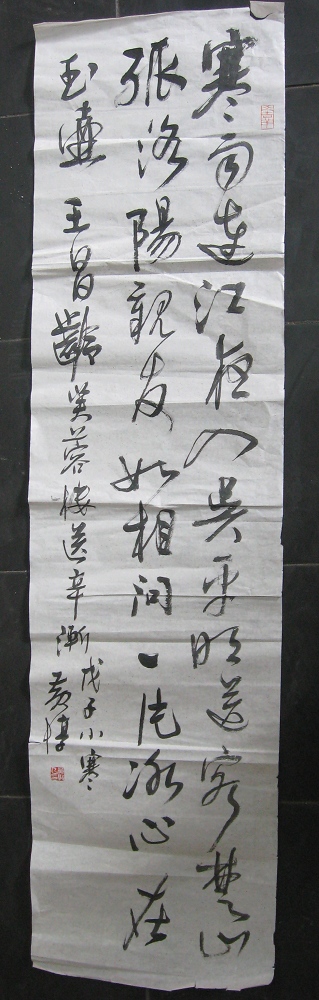 寒雨連江夜入吳平明送客楚山
孤洛陽親友如相問一片冰心在
玉壺 王昌齡芙蓉樓送辛漸 戊子小寒